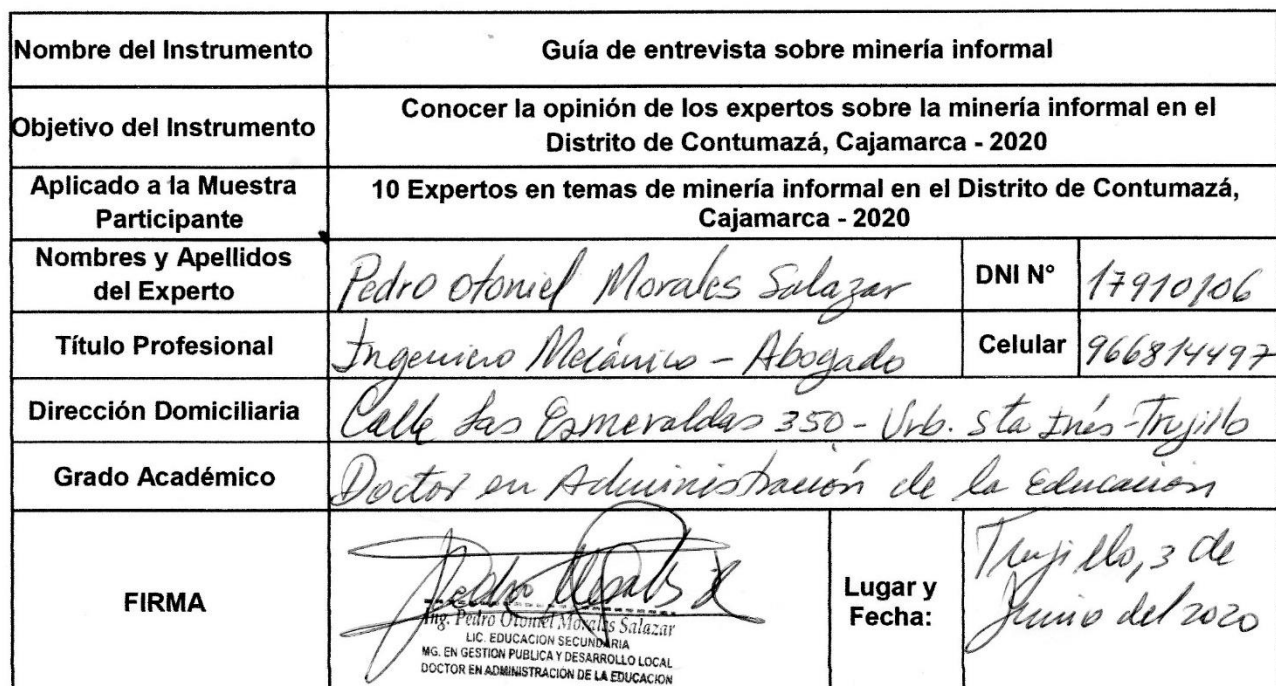 Nombre del Instrumento
Guía de entrevista sobre minería informal
Objetivo del Instrumento
Conocer la opinión de los expertos sobre la minería informal en el
Distrito de Contumazá, Cajamarca - 2020
Aplicado a la Muestra
Participante
10 Expertos en temas de minería informal en el Distrito de Contumazá,
Cajamarca - 2020
Nombres y Apellidos
del Experto
Pedro Otoniel Morales Salazar
DNI N°
17910106
Título Profesional
Ingeniero Mecánico - Abogado
Celular
966814497
Dirección Domiciliaria
Calle Las Esmeraldas 350 - Urb. Sta Inés - Trujillo
Grado Académico
Doctor en Administración de la Educación
FIRMA
Ing. Pedro Otoniel Morales Salazar
LIC. EDUCACION SECUNDARIA
MG. EN GESTION PUBLICA Y DESARROLLO LOCAL
DOCTOR EN ADMINISTRACIÓN DE LA EDUCACION
Lugar y
Fecha:
Trujillo, 3 de
Junio del 2020